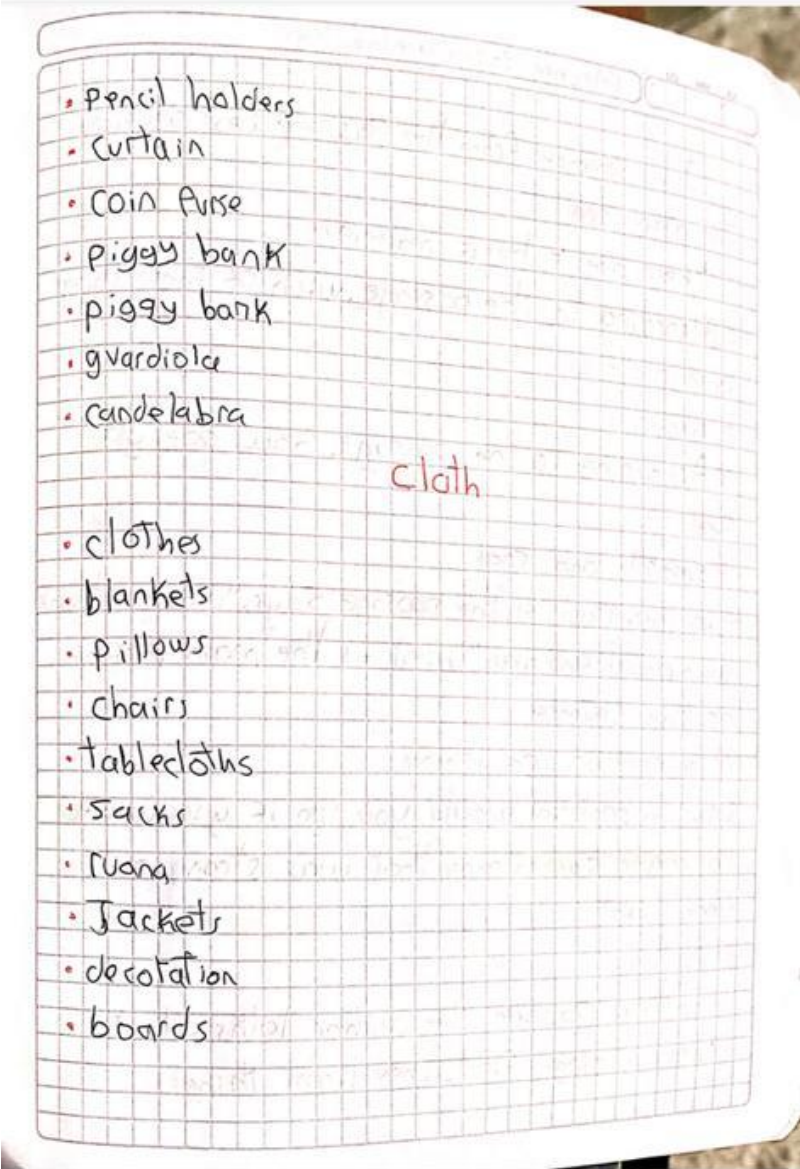 • Pencil holders
• Curtain
• Coin Purse
• Piggy bank
• piggy bank
• guardiola
• candelabra
cloth
• clothes
• blankets
• Pillows
• Chairs
• tablecloths
• sacks
• ruana
• Jackets
• decoration
• boards